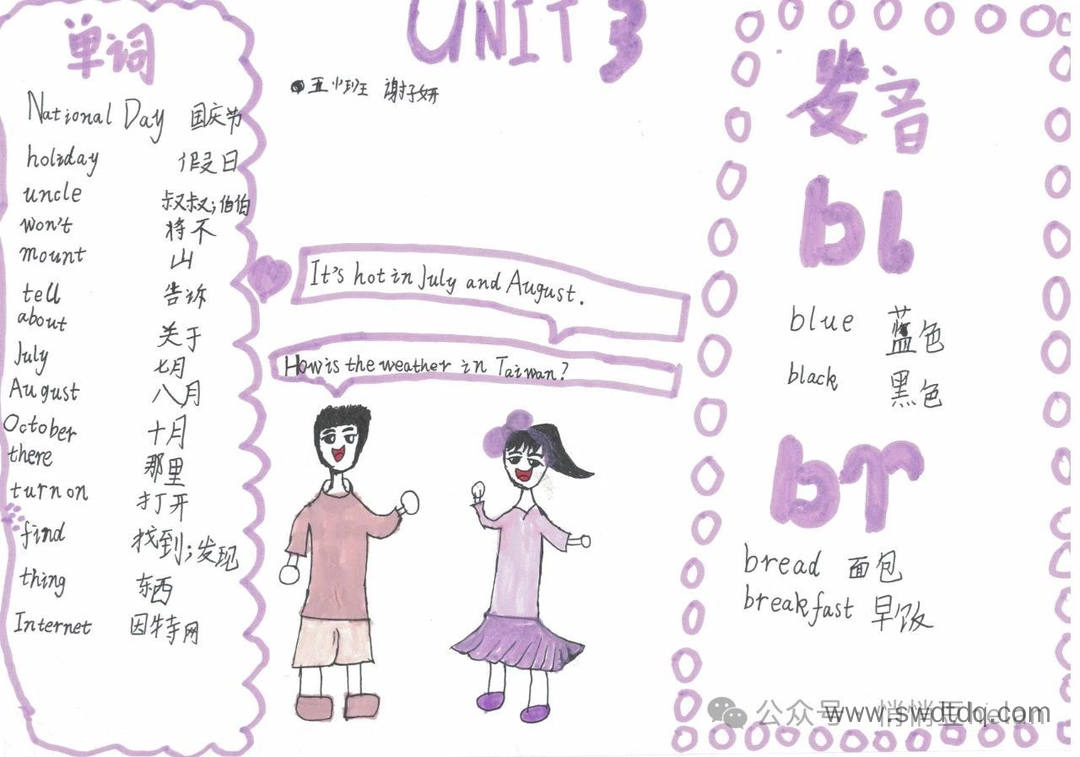 单词
National Day 国庆节
holiday 假日
uncle 叔叔;伯伯
won't 将不
mount 山
tell 告诉
about 关于
July 七月
August 八月
October 十月
there 那里
turn on 打开
find 找到;发现
thing 东西
Internet 因特网
UNIT 3
五 班 谢子妍
It's hot in July and August.
How is the weather in Taiwan?
发音
bl
blue 蓝色
black 黑色
br
bread 面包
breakfast 早饭
公众号
www.swdtdq.com